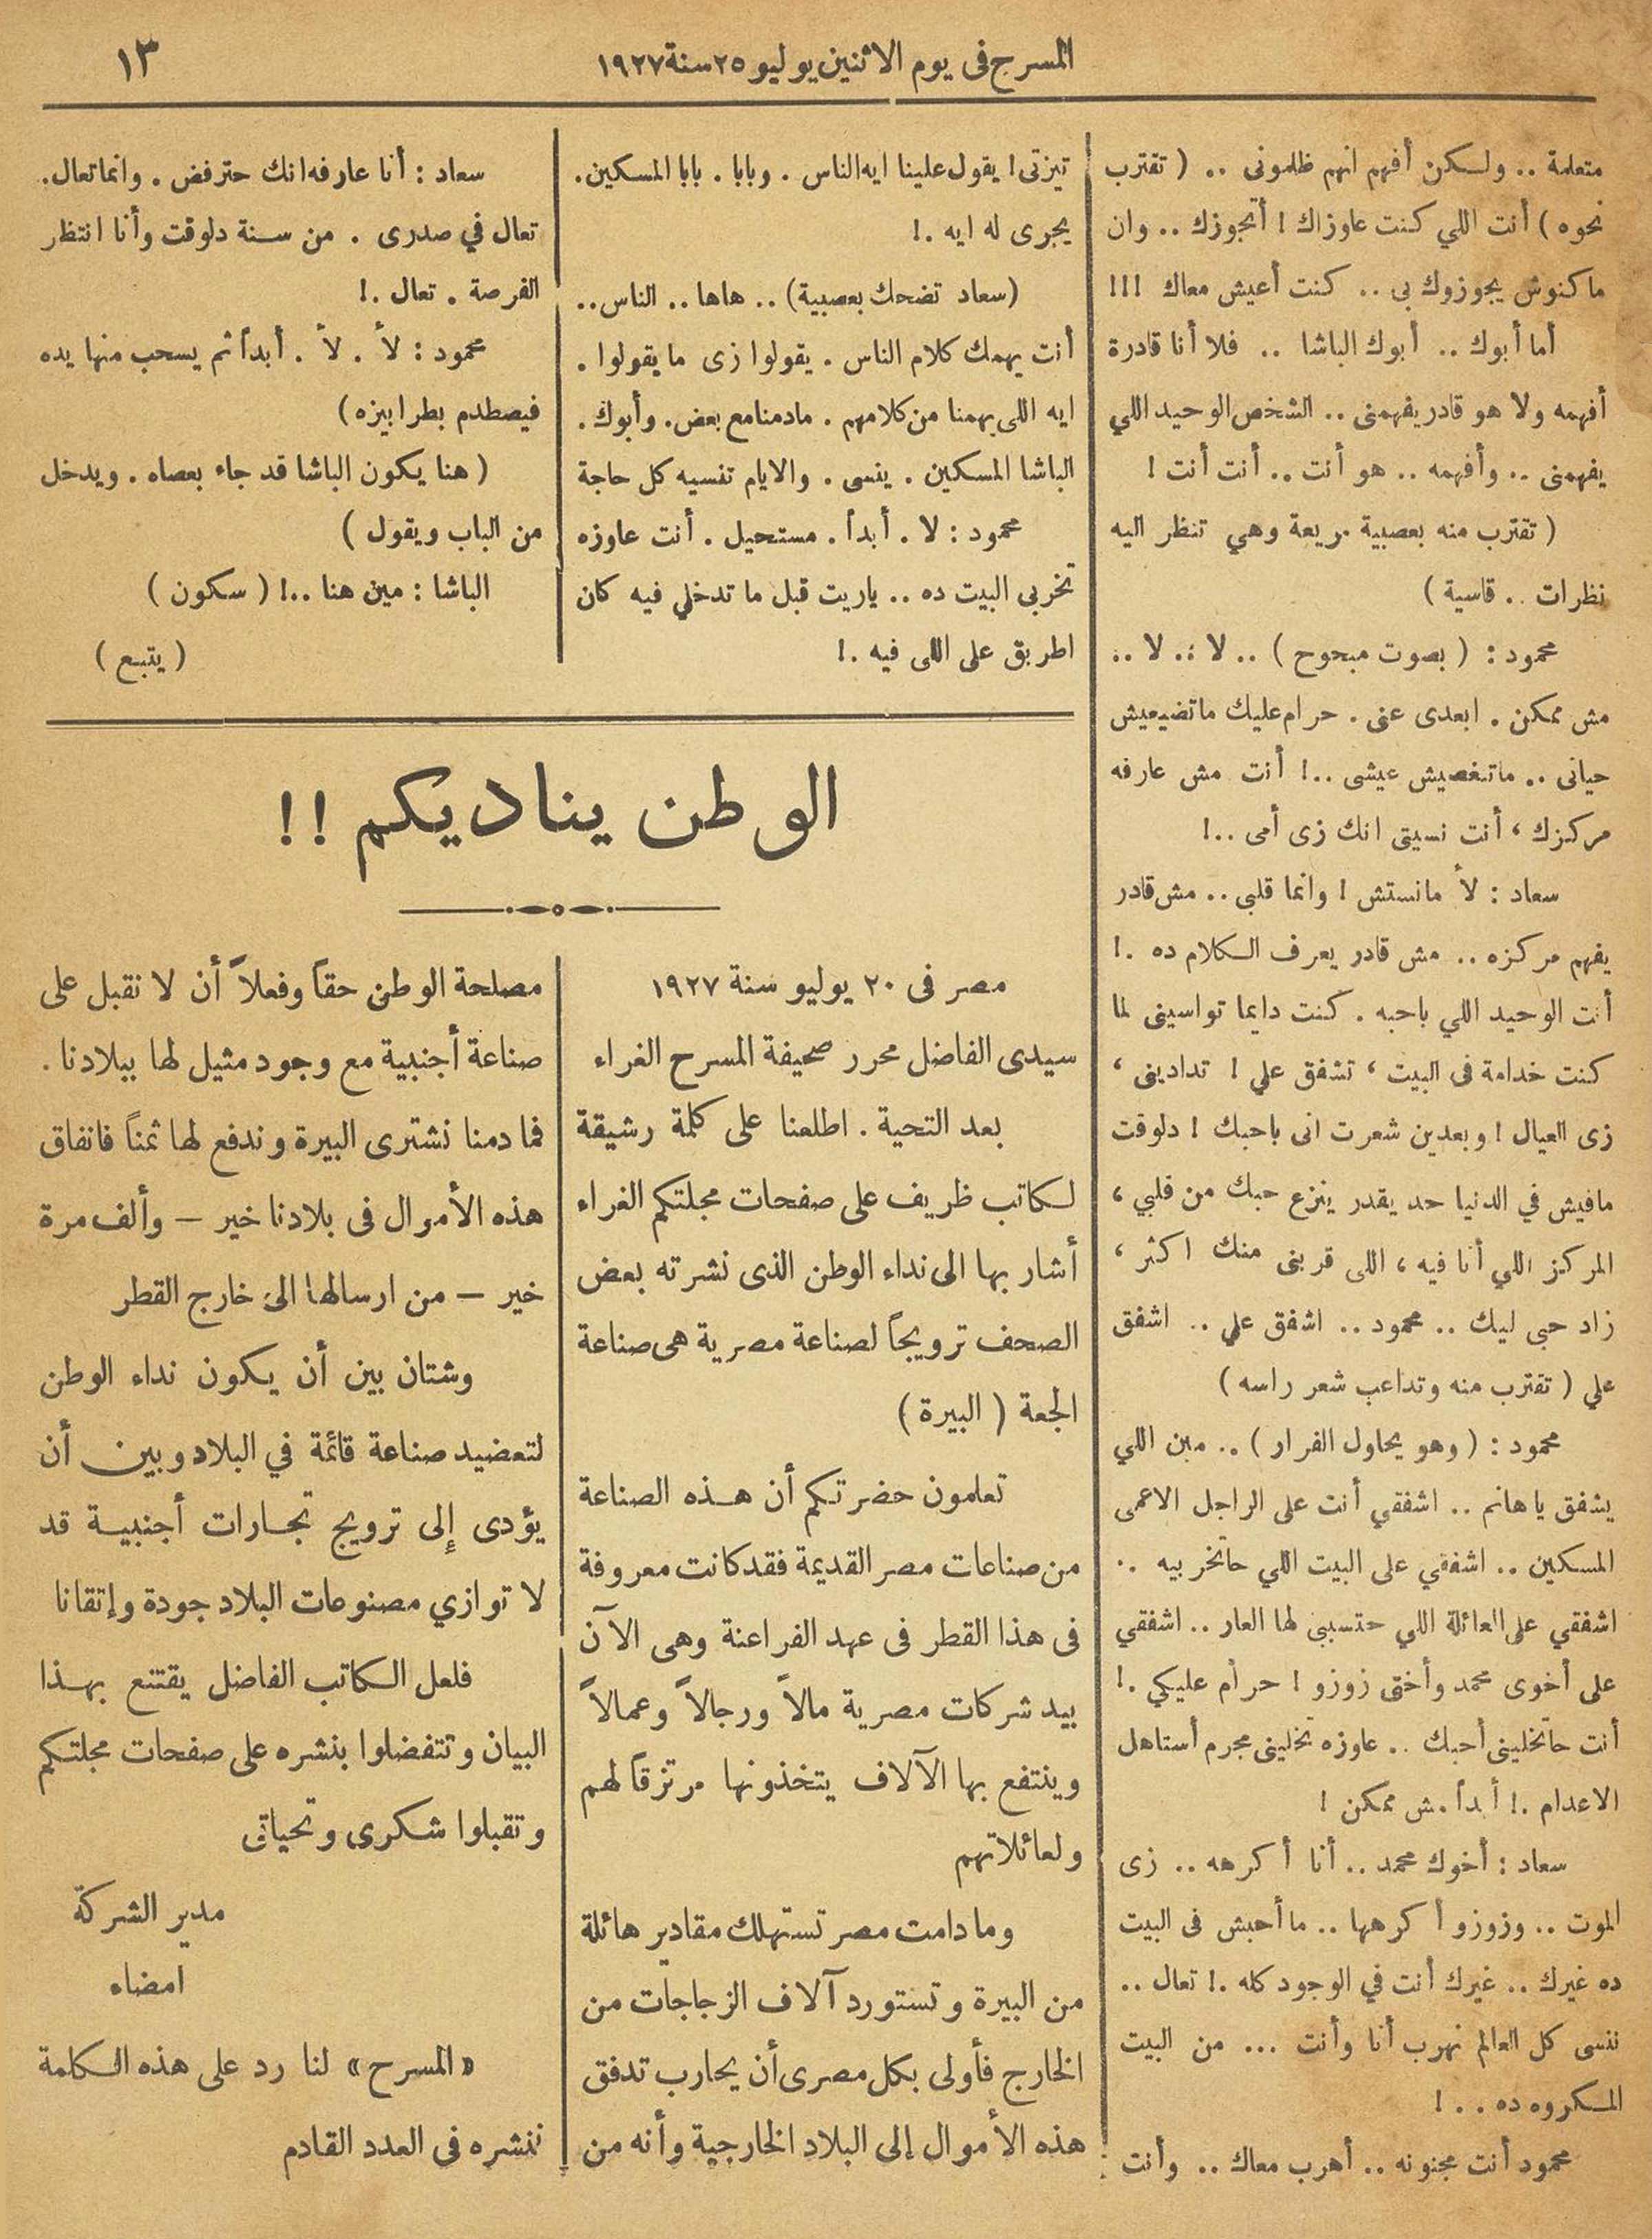 المسرح فى يوم الاثنين يوليو ٢٥ سنة ١٩٢٧
١٣
متعلمة .. ولكن أفهم انهم ظلمونى .. ( تقترب
نحوه ) أنت اللي كنت عاوزاك ! أتجوزك .. وان
ما كنوش يجوزوك بى .. كنت أعيش معاك !!!
أما أبوك .. أبوك الباشا .. فلا أنا قادرة
أفهمه ولا هو قادر يفهمنى .. الشخص الوحيد اللي
يفهمنى .. وأفهمه .. هو أنت .. أنت أنت !
( تقترب منه بعصبية مريعة وهي تنظر اليه
نظرات .. قاسية )
محمود : ( بصوت مبحوح ) .. لا .. لا ..
مش ممكن . ابعدى عنى . حرام عليك ماتضيعيش
حياتى .. ماتنغصيش عيشى ..! أنت مش عارفه
مركزك ، أنت نسيتى انك زى أمى ..!
سعاد : لأ مانستش ! وانما قلبى .. مش قادر
يفهم مركزه .. مش قادر يعرف الكلام ده .!
أنت الوحيد اللي باحبه . كنت دايما تواسينى لما
كنت خدامة فى البيت ، تشفق علي ! تدادينى ،
زى العيال ! وبعدين شعرت انى باحبك ! دلوقت
مافيش في الدنيا حد يقدر ينزع حبك من قلبي ،
المركز اللي أنا فيه ، اللى قربنى منك اكثر ،
زاد حبى ليك .. محمود .. اشفق علي .. اشفق
علي ( تقترب منه وتداعب شعر راسه )
محمود : ( وهو يحاول الفرار ) .. مين اللي
يشفق يا هانم .. اشفقي أنت على الراجل الاعمى
المسكين .. اشفقي على البيت اللي حاتخربيه ..
اشفقي على العائلة اللي حتسببى لها العار .. اشفقي
على أخوى محمد وأختى زوزو ! حرام عليكي .!
أنت حاتخلينى أحبك .. عاوزه تخلينى مجرم أستاهل
الاعدام .! أبدأ مش ممكن !
سعاد : أخوك محمد .. أنا أكرهه .. زى
الموت .. وزوزو أكرهها .. ما أحبش فى البيت
ده غيرك .. غيرك أنت في الوجود كله .! تعال ..
ننسى كل العالم نهرب أنا وأنت ... من البيت
المكروه ده . . !
محمود أنت مجنونه .. أهرب معاك .. وأنت
تيزتى ! يقول علينا ايه الناس . وبابا . بابا المسكين .
يجرى له ايه .!
(سعاد تضحك بعصبية) .. هاها .. الناس ..
أنت يهمك كلام الناس . يقولوا زى ما يقولوا .
ايه اللى يهمنا من كلامهم . مادمنا مع بعض . وأبوك .
الباشا المسكين . ينسى . والايام تنسيه كل حاجة
محمود : لا . أبدأ . مستحيل . أنت عاوزه
تخربى البيت ده .. ياريت قبل ما تدخلي فيه كان
اطربق على اللى فيه .!
سعاد : أنا عارفه انك حترفض . وانما تعال .
تعال في صدرى . من سنة دلوقت وأنا انتظر
الفرصة . تعال .!
محمود : لأ . لأ . أبدأ ثم يسحب منها يده
فيصطدم بطرابيزه )
( هنا يكون الباشا قد جاء بعصاه . ويدخل
من الباب ويقول )
الباشا : مين هنا ..! ( سكون )
( يتبع )
الوطن يناديكم !!
مصر فى ٢٠ يوليو سنة ١٩٢٧
سيدى الفاضل محرر صحيفة المسرح الغراء
بعد التحية . اطلعنا على كلمة رشيقة
لكاتب ظريف على صفحات مجلتكم الغراء
أشار بها الى نداء الوطن الذى نشرته بعض
الصحف ترويجاً لصناعة مصرية هى صناعة
الجعة ( البيرة )
تعلمون حضرتكم أن هذه الصناعة
من صناعات مصر القديمة فقد كانت معروفة
فى هذا القطر فى عهد الفراعنة وهى الآن
بيد شركات مصرية مالاً ورجالاً وعمالاً
وينتفع بها الآلاف يتخذونها مرتزقاً لهم
ولعائلاتهم
وما دامت مصر تستهلك مقادير هائلة
من البيرة وتستورد آلاف الزجاجات من
الخارج فأولى بكل مصرى أن يحارب تدفق
هذه الأموال إلى البلاد الخارجية وأنه من
مصلحة الوطن حقاً وفعلاً أن لا نقبل على
صناعة أجنبية مع وجود مثيل لها ببلادنا .
فما دمنا نشترى البيرة وندفع لها ثمناً فانفاق
هذه الأموال فى بلادنا خير — وألف مرة
خير — من ارسالها الى خارج القطر
وشتان بين أن يكون نداء الوطن
لتعضيد صناعة قائمة في البلاد وبين أن
يؤدى إلى ترويج تجارات أجنبية قد
لا توازي مصنوعات البلاد جودة وإتقانا
فلعل الكاتب الفاضل يقتنع بهذا
البيان وتتفضلوا بنشره على صفحات مجلتكم
وتقبلوا شكرى وتحياتى
مدير الشركة
امضاء
« المسرح » لنا رد على هذه الكلمة
ننشره فى العدد القادم